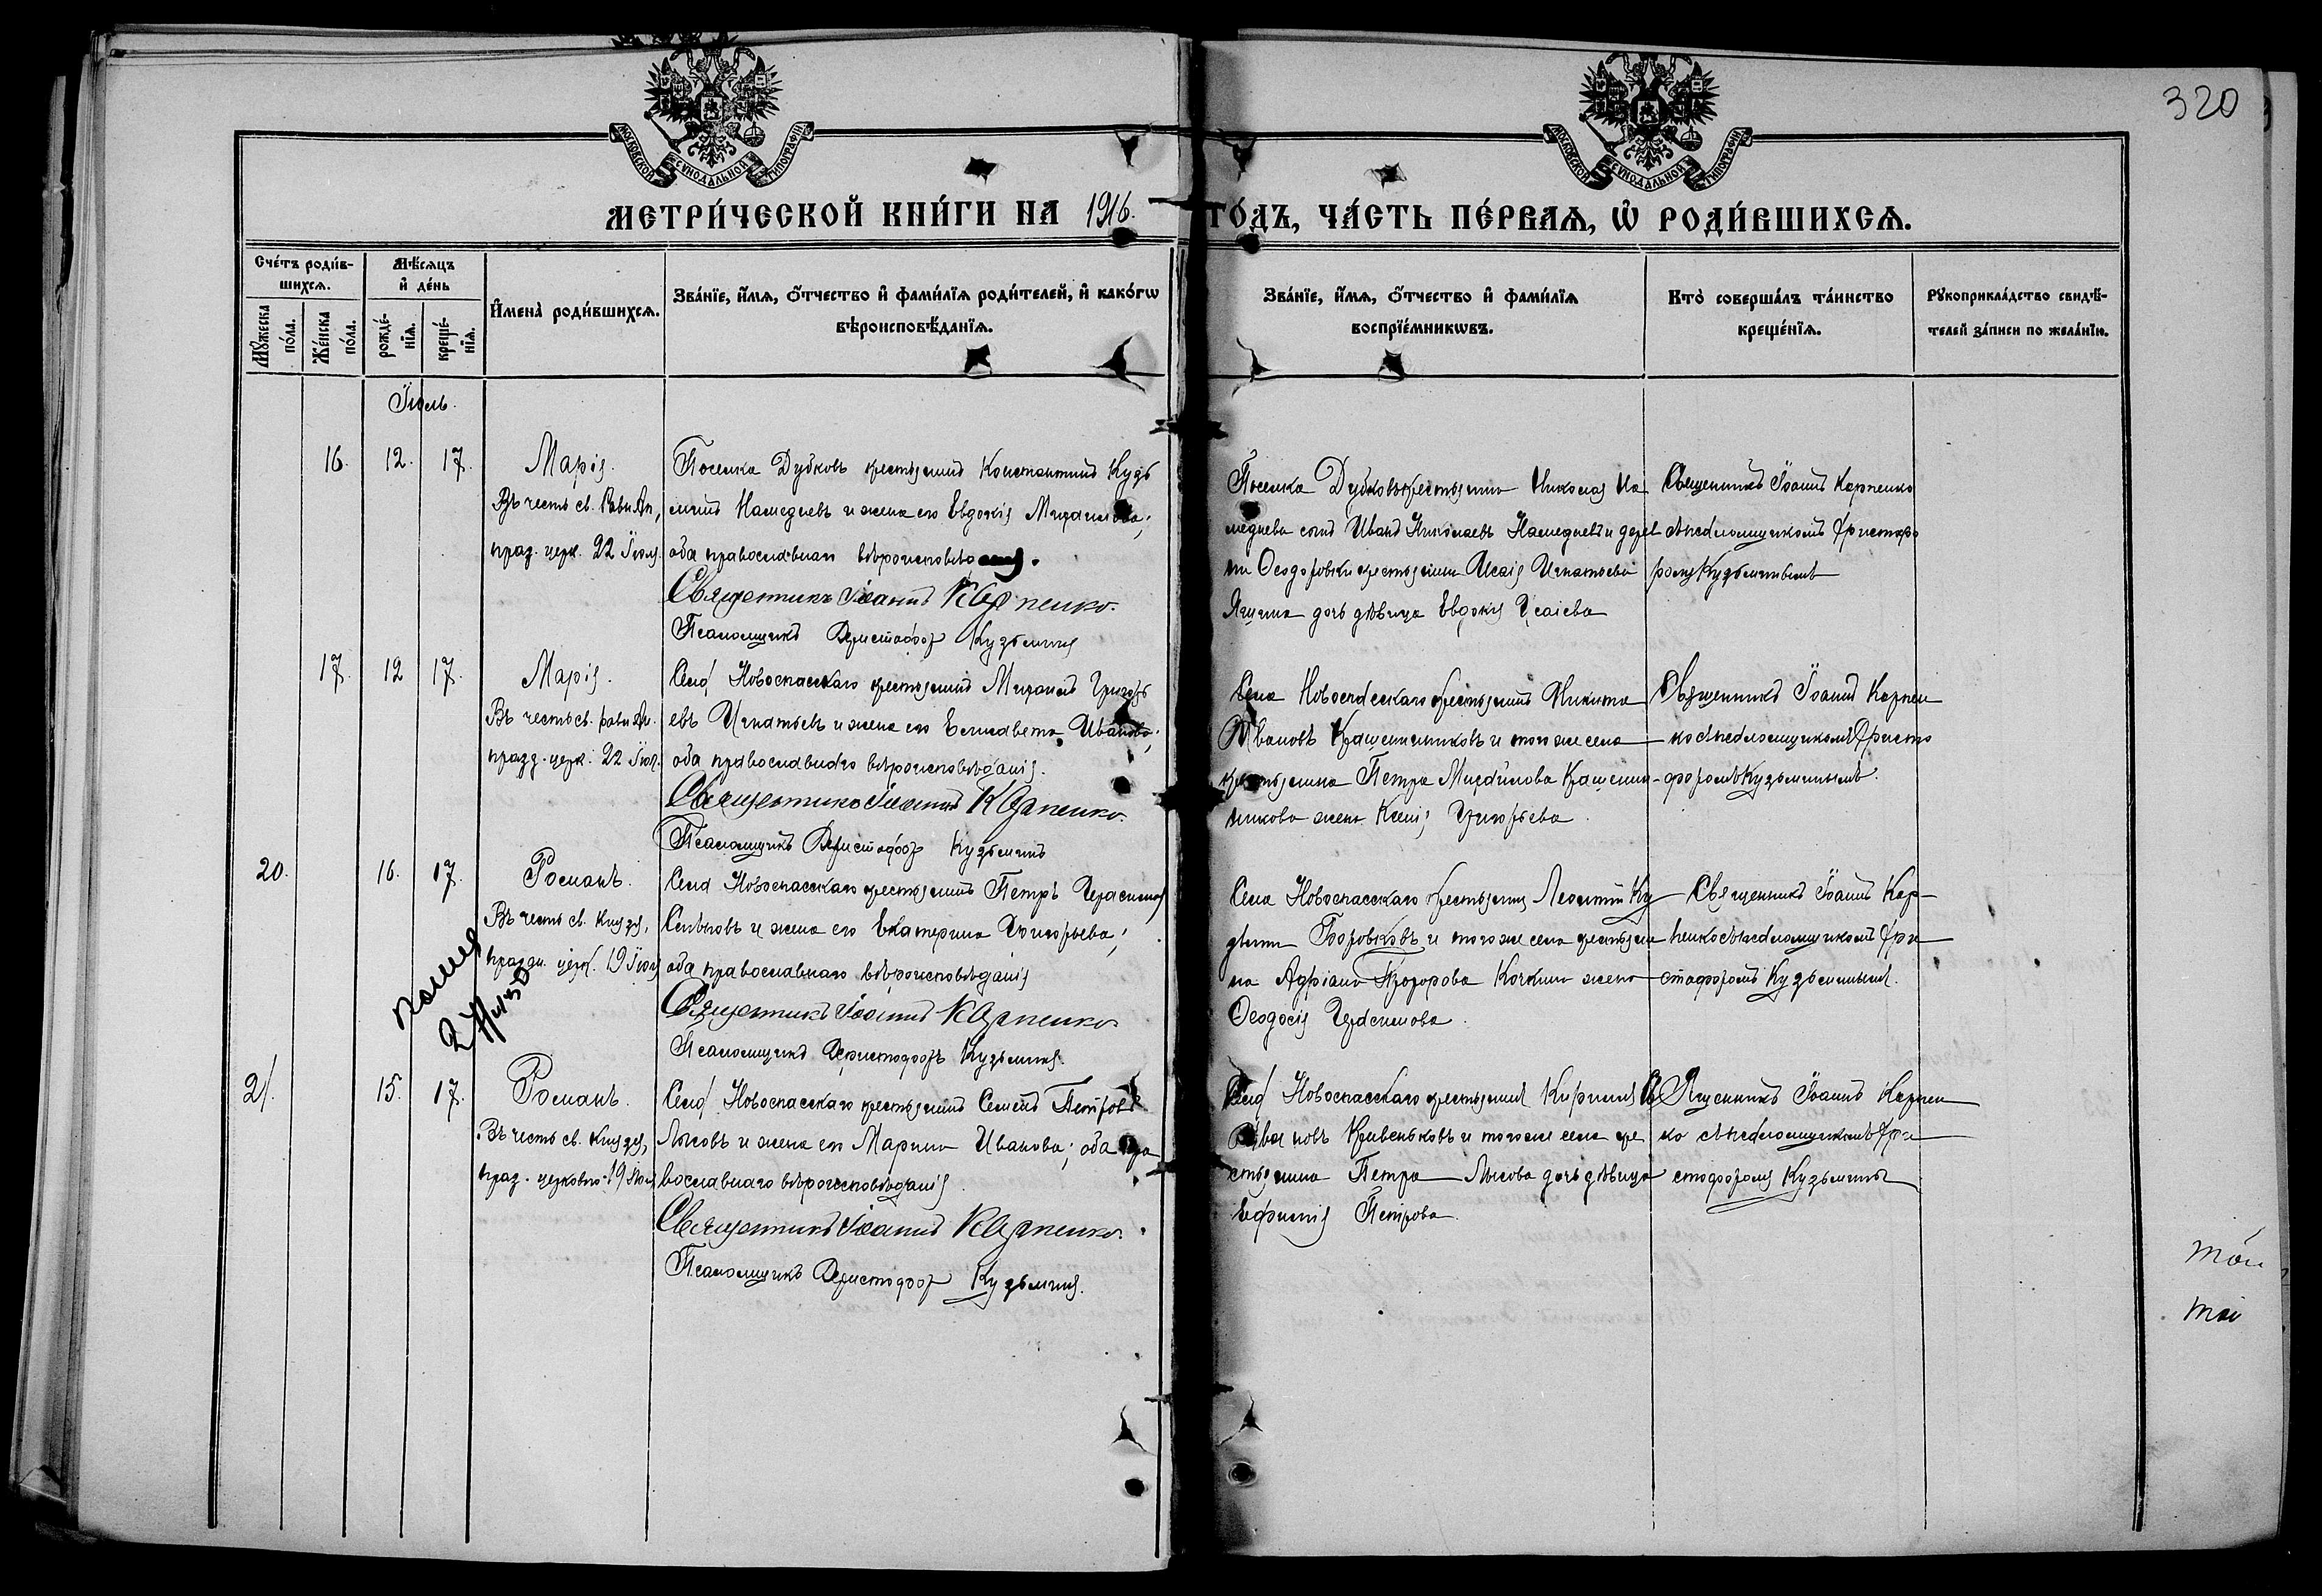 320
МОСКОВСКОЙ СѴНОДАЛЬНОЙ ТИПОГРАФІИ
МОСКОВСКОЙ СѴНОДАЛЬНОЙ ТИПОГРАФІИ
МЕТРИ́ЧЕСКОЙ КНИ́ГИ НА 1916. ГО́ДЪ, ЧА́СТЬ ПЕ́РВАѦ, Ѡ҆ РОДИ́ВШИХСѦ.
Сче́тъ роди́в-
шихсѧ.
Мꙋ́жеска по́ла.
Же́нска по́ла.
Мѣ́сѧцъ
и҆ де́нь
рожде́-
нїѧ.
креще́-
нїѧ.
И҆мена̀ роди́вшихсѧ.
Зва́нїе, и҆́мѧ, ѻ҆́тчество и҆ фами́лїѧ роди́телей, и҆ како́гѡ
вѣроисповѣ́данїѧ.
Зва́нїе, и҆́мѧ, ѻ҆́тчество и҆ фами́лїѧ
воспрїе́мникѡвъ.
Кто̀ соверша́лъ та́инство
креще́нїѧ.
Рꙋкоприкла́дство свидѣ́-
телей за́писи по жела́нїю.
Іюль.
16. 12. 17. Марія.
Въ честь св. Равн. Ап,
праз. церк. 22 Іюля.
Поселка Дубковъ крестьянинъ Константинъ Кузь
минъ Намедневъ и жена его Евдокія Михаилова;
оба православнаго вѣроисповѣданія.
Священникъ Іоаннъ Карпенко.
Псаломщикъ Христофоръ Кузьминъ
Поселка Дубковъ крестьянина Николая На
меднева сынъ Иванъ Николаевъ Намедневъ и дерев
ни Ѳеодоровки крестьянина Исаія Игнатьева
дочь дѣвица Евдокія Исаіева
Священникъ Іоаннъ Карпенко
съ псаломщикомъ Христофо
ромъ Кузьминымъ
17. 12 17. Марія.
Въ честь св. равн. Ап.
празд. церк. 22 Іюл.
Села Новоспасскаго крестьянинъ Михаилъ Григорь
евъ Игнатьевъ и жена его Елисавета Иванова;
оба православнаго вѣроисповѣданія.
Священникъ Іоаннъ Карпенко.
Псаломщикъ Христофоръ Кузьминъ
Села Новоспасскаго крестьянинъ Никита
Ивановъ Крашенинниковъ и того же села
крестьянина Петра Михайлова Крашенин-
никова жена Ксенія Григорьева.
Священникъ Іоаннъ Карпен
ко съ псаломщикомъ Христо
форомъ Кузьминымъ.
20. 16. 17. Романъ.
Въ честь св. Князя,
праздн. церк. 19 Іюля
Села Новоспасскаго крестьянинъ Петръ Герасимовъ
и жена его Екатерина Григорьева;
оба православнаго вѣроисповѣданія
Священникъ Іоаннъ Карпенко
Псаломщикъ Христофоръ Кузьминъ.
Села Новоспасскаго крестьянинъ Леонтій Ку
Боровковъ и того же села крестьяни
на Адріана Прохорова Кочкина жена
Ѳеодосія Герасимова.
Священникъ Іоаннъ Кар-
пенко съ псаломщикомъ Хри
стофоромъ Кузьминымъ.
21. 15. 17. Романъ.
Въ честь св. Князя,
праз. церковью 19 Іюля
Села Новоспасскаго крестьянинъ Семенъ Петровъ
Лысовъ и жена его Марина Иванова; оба пра
вославнаго вѣроисповѣданія.
Священникъ Іоаннъ Карпенко.
Псаломщикъ Христофоръ Кузьминъ.
Села Новоспасскаго крестьянинъ Кириллъ
Ивановъ Кривеньковъ и того же села кре
стьянина Петра Лысова дочь дѣвица
Петрова.
Священникъ Іоаннъ Карпен
ко съ псаломщикомъ Хри
стофоромъ Кузьминымъ